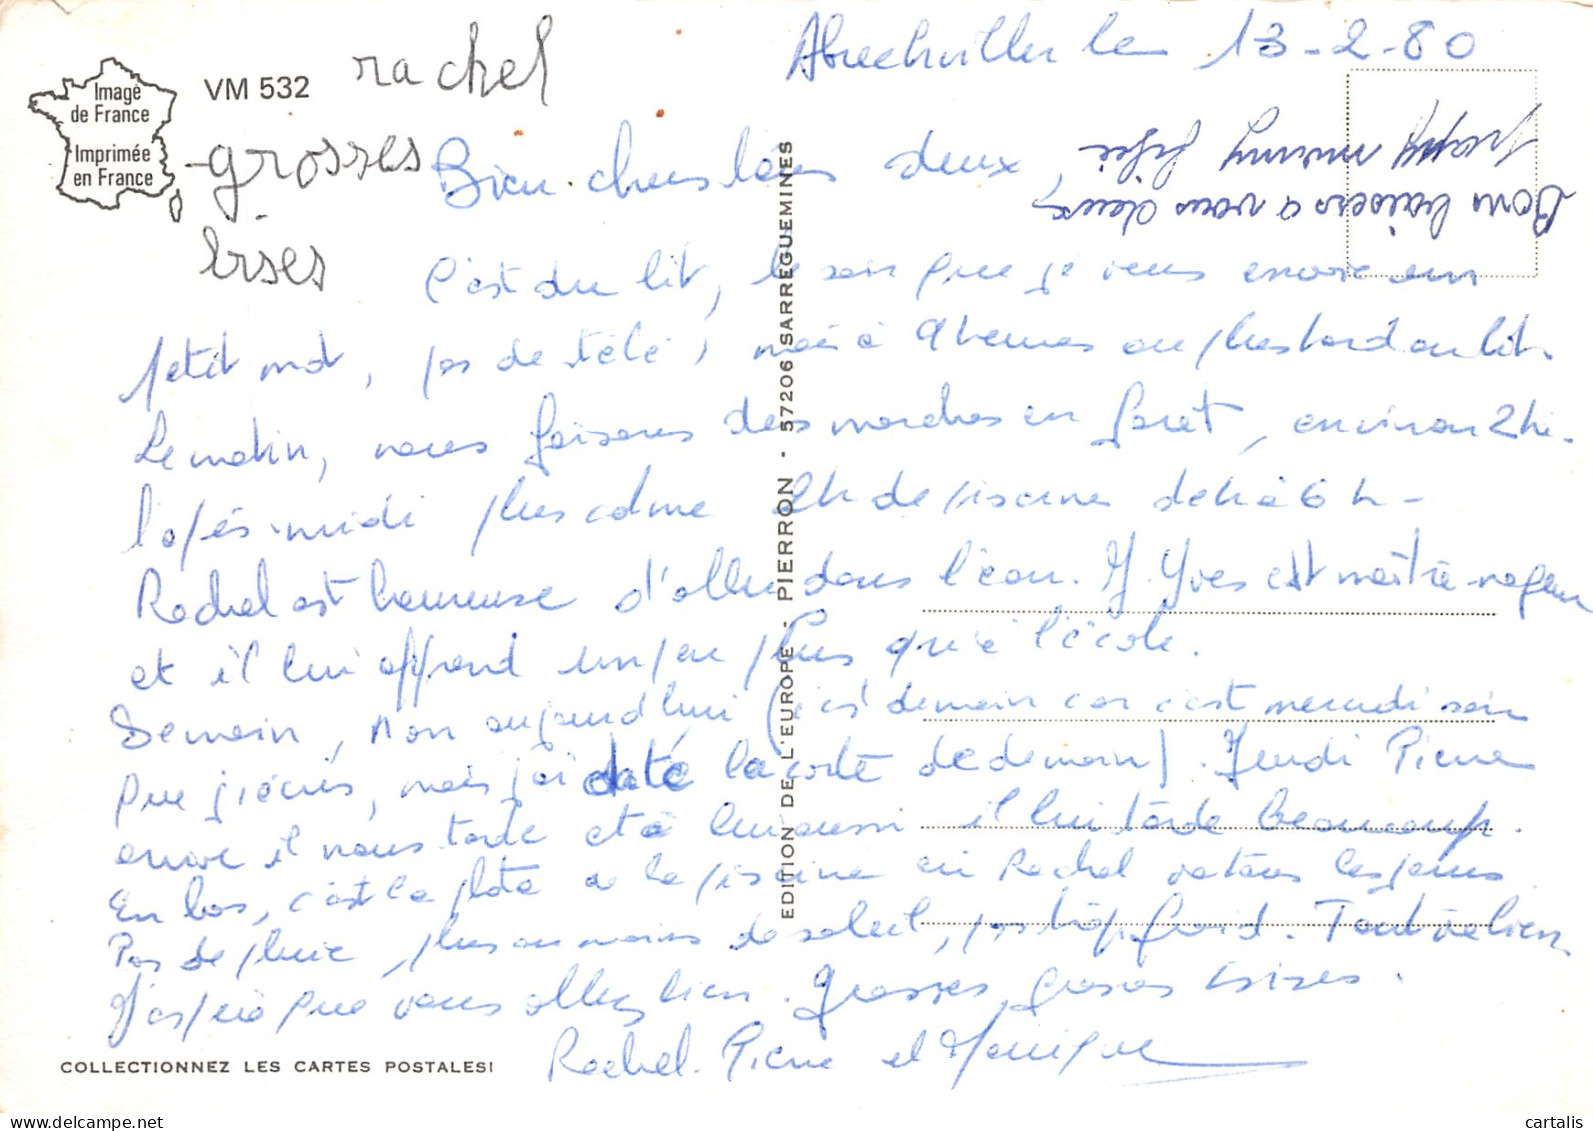 Abreschviller le 13-2-80
Image
de France
Imprimée
en France
VM 532
rachel
grosses
bises
Bien chers tous deux,
Bons baisers a vous deux
papy mamy fifie
C'est du lit, le soir que je vous envoie un
petit mot, pas de télé, mais à 9 heures ou plus tard au lit.
Le matin, nous faisons des marches en forêt, environ 2 h.
l'après-midi plus calme 2h de piscine de 4 à 6 h -
Rachel est heureuse d'aller dans l'eau. J. Yves est maître-nageur
et il lui apprend un peu plus qu'à l'école.
Demain, non aujourd'hui (c'est demain car c'est mercredi soir
que j'écris, mais j'ai daté la carte de demain). Jeudi Pierre
arrive il nous tarde et à lui aussi il lui tarde beaucoup.
En bas, c'est la photo de la piscine où Rachel va tous les jours
Pas de pluie, plus ou moins de soleil, pas trop froid. Tout va bien
J'espère que vous allez bien. Grosses, grosses bises.
Rachel. Pierre et Monique
EDITION DE L'EUROPE - PIERRON - 57206 SARREGUEMINES
COLLECTIONNEZ LES CARTES POSTALES!
cartalis